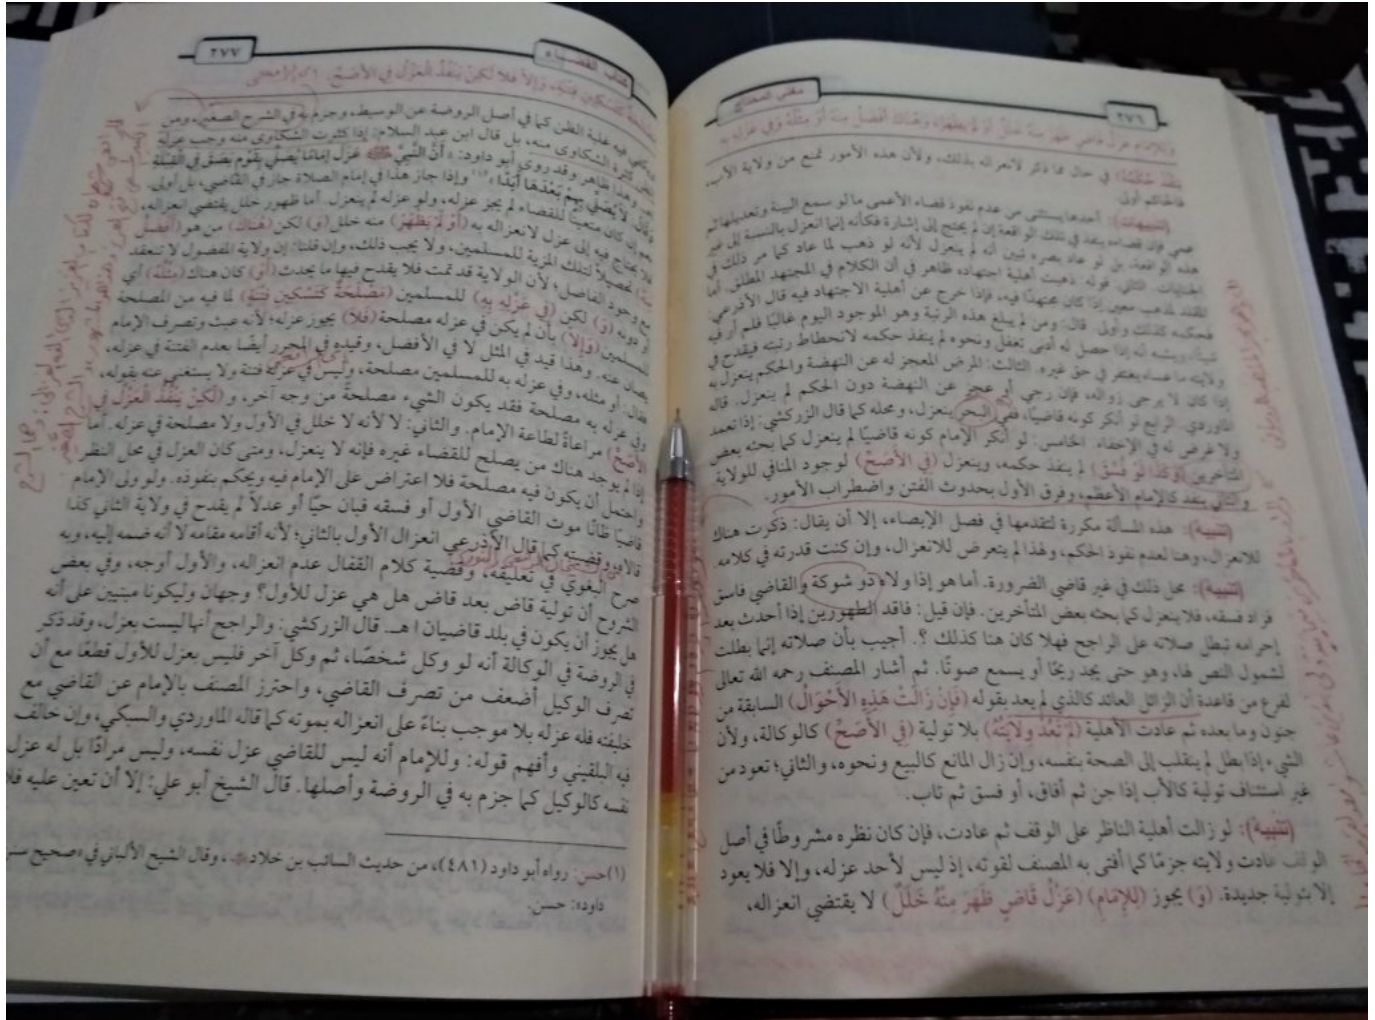 ٢٧٦
مغني المحتاج
وَلِلإِمَامِ عَزْلُ قَاضٍ ظَهَرَ مِنْهُ خَلَلٌ أَوْ لَمْ يَظْهَرْ، وَهُنَاكَ أَفْضَلُ مِنْهُ أَوْ مِثْلُهُ وَفِي عَزْلِهِ بِهِ
يَنْفُذْ حُكْمُهُ) في حال مما ذكر لانعزاله بذلك، ولأن هذه الأمور تمنع من ولاية الأب،
فالحاكم أولى.
(تنبيهات): أحدها يستثنى من عدم نفوذ قضاء الأعمى ما لو سمع البينة وتعديلها ثم
عمي فإن قضاءه ينفذ في تلك الواقعة إن لم يحتج إلى إشارة فكأنه إنما انعزل بالنسبة إلى غير
هذه الواقعة، بل لو عاد بصره تبين أنه لم ينعزل لأنه لو ذهب لما عاد كما مر ذلك في
الجنايات. الثاني: قوله: ذهبت أهلية اجتهاده ظاهر في أن الكلام في المجتهد المطلق. أما
المقلد لمذهب معين إذا كان مجتهدًا فيه، فإذا خرج عن أهلية الاجتهاد فيه قال الأذرعي:
فحكمه كذلك وأولى. قال: ومن لم يبلغ هذه الرتبة وهو الموجود اليوم غالبًا فلم أر فيه
شيئًا، ويشبه أنه إذا حصل له أدنى تغفل ونحوه لم ينفذ حكمه لانحطاط رتبته فيقدح في
ولايته ما عساه يغتفر في حق غيره. الثالث: المرض المعجز له عن النهضة والحكم ينعزل به
إذا كان لا يرجى زواله، فإن رجي أو عجز عن النهضة دون الحكم لم ينعزل. قاله
الماوردي. الرابع لو أنكر كونه قاضيًا، ففي البحر ينعزل، ومحله كما قال الزركشي: إذا تعمد
ولا غرض له في الإخفاء. الخامس: لو أنكر الإمام كونه قاضيًا لم ينعزل كما بحثه بعض
المتأخرين (وَكَذَا لَوْ فَسَقَ) لم ينفذ حكمه، وينعزل (فِي الأَصَحِّ) لوجود المنافي للولاية
والثاني ينفذ كالإمام الأعظم، وفرق الأول بحدوث الفتن واضطراب الأمور.
(تنبيه): هذه المسألة مكررة لتقدمها في فصل الإيصاء، إلا أن يقال: ذكرت هناك
للانعزال، وهنا لعدم نفوذ الحكم، ولهذا لم يتعرض للانعزال، وإن كنت قدرته في كلامه.
(تنبيه): محل ذلك في غير قاضي الضرورة. أما هو إذا ولاه ذو شوكة والقاضي فاسق
فزاد فسقه، فلا ينعزل كما بحثه بعض المتأخرين. فإن قيل: فاقد الطهورين إذا أحدث بعد
إحرامه تبطل صلاته على الراجح فهلا كان هنا كذلك؟. أجيب بأن صلاته إنما بطلت
لشمول النص لها، وهو حتى يجد ريحًا أو يسمع صوتًا. ثم أشار المصنف رحمه الله تعالى
لفرع من قاعدة أن الزائل العائد كالذي لم يعد بقوله (فَإِنْ زَالَتْ هَذِهِ الأَحْوَالُ) السابقة من
جنون وما بعده ثم عادت الأهلية (لَمْ تَعُدْ وِلَايَتُهُ) بلا تولية (فِي الأَصَحِّ) كالوكالة، ولأن
الشيء إذا بطل لم ينقلب إلى الصحة بنفسه، وإن زال المانع كالبيع ونحوه، والثاني؛ تعود من
غير استئناف تولية كالأب إذا جن ثم أفاق، أو فسق ثم تاب.
(تنبيه): لو زالت أهلية الناظر على الوقف ثم عادت، فإن كان نظره مشروطًا في أصل
الوقف عادت ولايته جزمًا كما أفتى به المصنف لقوته، إذ ليس لأحد عزله، وإلا فلا يعود
إلا بتولية جديدة. (وَ) يجوز (لِلإِمَامِ) (عَزْلُ قَاضٍ ظَهَرَ مِنْهُ خَلَلٌ) لا يقتضي انعزاله،
كتاب القضاء
٢٧٧
مَصْلَحَةٌ كَتَسْكِينِ فِتْنَةٍ، وَإِلَّا فَلَا لَكِنْ يَنْفُذُ الْعَزْلُ فِي الأَصَحِّ.
ويكفي فيه غلبة الظن كما في أصل الروضة عن الوسيط، وجزم به في الشرح الصغير، ومن
الظن كثرة الشكاوى منه، بل قال ابن عبد السلام: إذا كثرت الشكاوى منه وجب عزله
وهذا ظاهر وقد روى أبو داود: «أَنَّ النَّبِيَّ ﷺ عَزَلَ إِمَامًا يُصَلِّي بِقَوْمٍ بَصَقَ فِي الْقِبْلَةِ
وقال: لَا يُصَلِّي بِهِمْ بَعْدَهَا أَبَدًا»(١) وإذا جاز هذا في إمام الصلاة جاز في القاضي، بل أولى.
نعم إن كان متعينًا للقضاء لم يجز عزله، ولو عزله لم ينعزل. أما ظهور خلل يقتضي انعزاله،
فلا يحتاج فيه إلى عزل لانعزاله به (أَوْ لَمْ يَظْهَرْ) منه خلل (وَ) لكن (هُنَاكَ) من هو (أَفْضَلُ
مِنْهُ) تحصيلًا لتلك المزية للمسلمين، ولا يجب ذلك، وإن قلنا: إن ولاية المفضول لا تنعقد
مع وجود الفاضل؛ لأن الولاية قد تمت فلا يقدح فيها ما يحدث (أَوْ) كان هناك (مِثْلُهُ) أي
أو دونه (وَ) لكن (فِي عَزْلِهِ بِهِ) للمسلمين (مَصْلَحَةٌ كَتَسْكِينِ فِتْنَةٍ) لما فيه من المصلحة
للمسلمين (وَإِلَّا) بأن لم يكن في عزله مصلحة (فَلَا) يجوز عزله؛ لأنه عبث وتصرف الإمام
يصان عنه. وهذا قيد في المثل لا في الأفضل، وقيده في المحرر أيضًا بعدم الفتنة في عزله،
فقال: أو مثله، وفي عزله به للمسلمين مصلحة، وليس في عزله فتنة ولا يستغنى عنه بقوله،
وفي عزله به مصلحة فقد يكون الشيء مصلحةً من وجه آخر، و (لَكِنْ يَنْفُذُ الْعَزْلُ فِي
الأَصَحِّ) مراعاةً لطاعة الإمام. والثاني: لا لأنه لا خلل في الأول ولا مصلحة في عزله. أما
إذا لم يوجد هناك من يصلح للقضاء غيره فإنه لا ينعزل، ومتى كان العزل في محل النظر
واحتمل أن يكون فيه مصلحة فلا اعتراض على الإمام فيه ويحكم بنفوذه. ولو ولى الإمام
قاضيًا ظانًّا موت القاضي الأول أو فسقه فبان حيًّا أو عدلًا لم يقدح في ولاية الثاني كذا
قالاه وقضيته كما قال الأذرعي انعزال الأول بالثاني؛ لأنه أقامه مقامه لا أنه ضمه إليه، وبه
صرح البغوي في تعليقه، وقضية كلام القفال عدم انعزاله، والأول أوجه، وفي بعض
الشروح أن تولية قاض بعد قاض هل هي عزل للأول؟ وجهان وليكونا مبنيين على أنه
هل يجوز أن يكون في بلد قاضيان اهـ. قال الزركشي: والراجح أنها ليست بعزل، وقد ذكر
في الروضة في الوكالة أنه لو وكل شخصًا، ثم وكل آخر فليس بعزل للأول قطعًا مع أن
تصرف الوكيل أضعف من تصرف القاضي، واحترز المصنف بالإمام عن القاضي مع
خليفته فله عزله بلا موجب بناءً على انعزاله بموته كما قاله الماوردي والسبكي، وإن خالف
فيه البلقيني وأفهم قوله: وللإمام أنه ليس للقاضي عزل نفسه، وليس مرادًا بل له عزل
نفسه كالوكيل كما جزم به في الروضة وأصلها. قال الشيخ أبو علي: إلا أن تعين عليه فلا
(١) حسن: رواه أبو داود (٤٨١)، من حديث السائب بن خلاد، وقال الشيخ الألباني في «صحيح سنن
داود»: حسن.